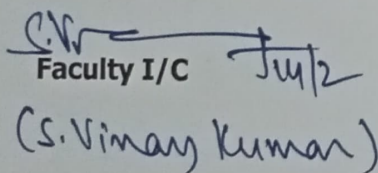 S.V
Faculty I/C
(S. Vinay Kumar)